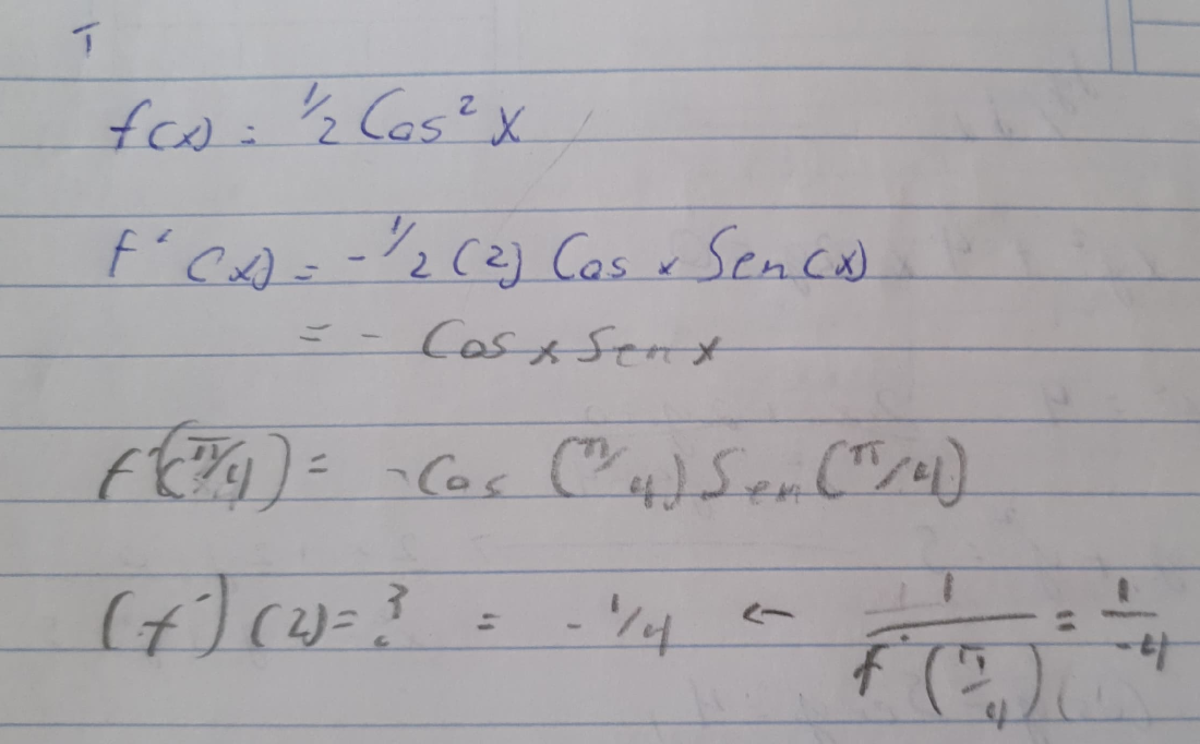 T
f(x) = 1/2 Cos² x
f'(x) = - 1/2 (2) Cos x Sen(x)
= - Cos x Sen x
f'(π/4) = - Cos (π/4) Sen (π/4)
(f⁻) (2) = ? = - 1/4 ← 1/f'(π/4) = 1/-4